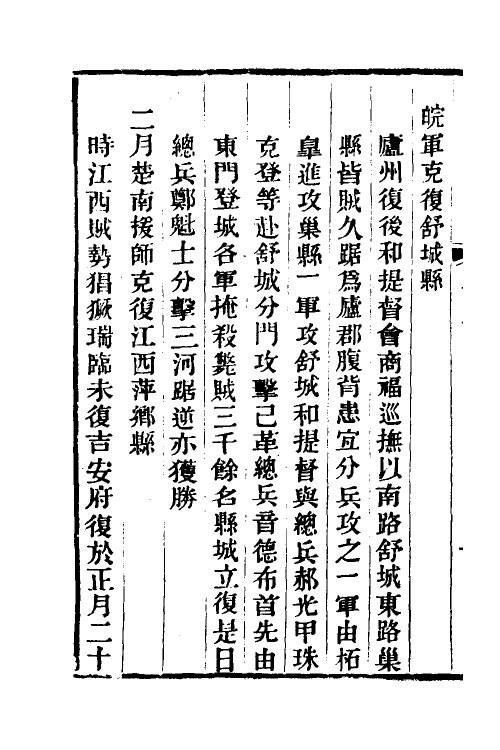 皖軍克復舒城縣
廬州復後和提督會商福巡撫以南路舒城東路巢
縣皆賊久踞爲廬郡腹背患宜分兵攻之一軍由柘
臯進攻巢縣一軍攻舒城和提督與總兵郝光甲珠
克登等赴舒城分門攻擊己革總兵音德布首先由
東門登城各軍掩殺斃賊三千餘名縣城立復是日
總兵鄭魁士分擊三河踞逆亦獲勝
二月楚南援師克復江西萍鄉縣
時江西賊勢猖獗瑞臨未復吉安府復於正月二十